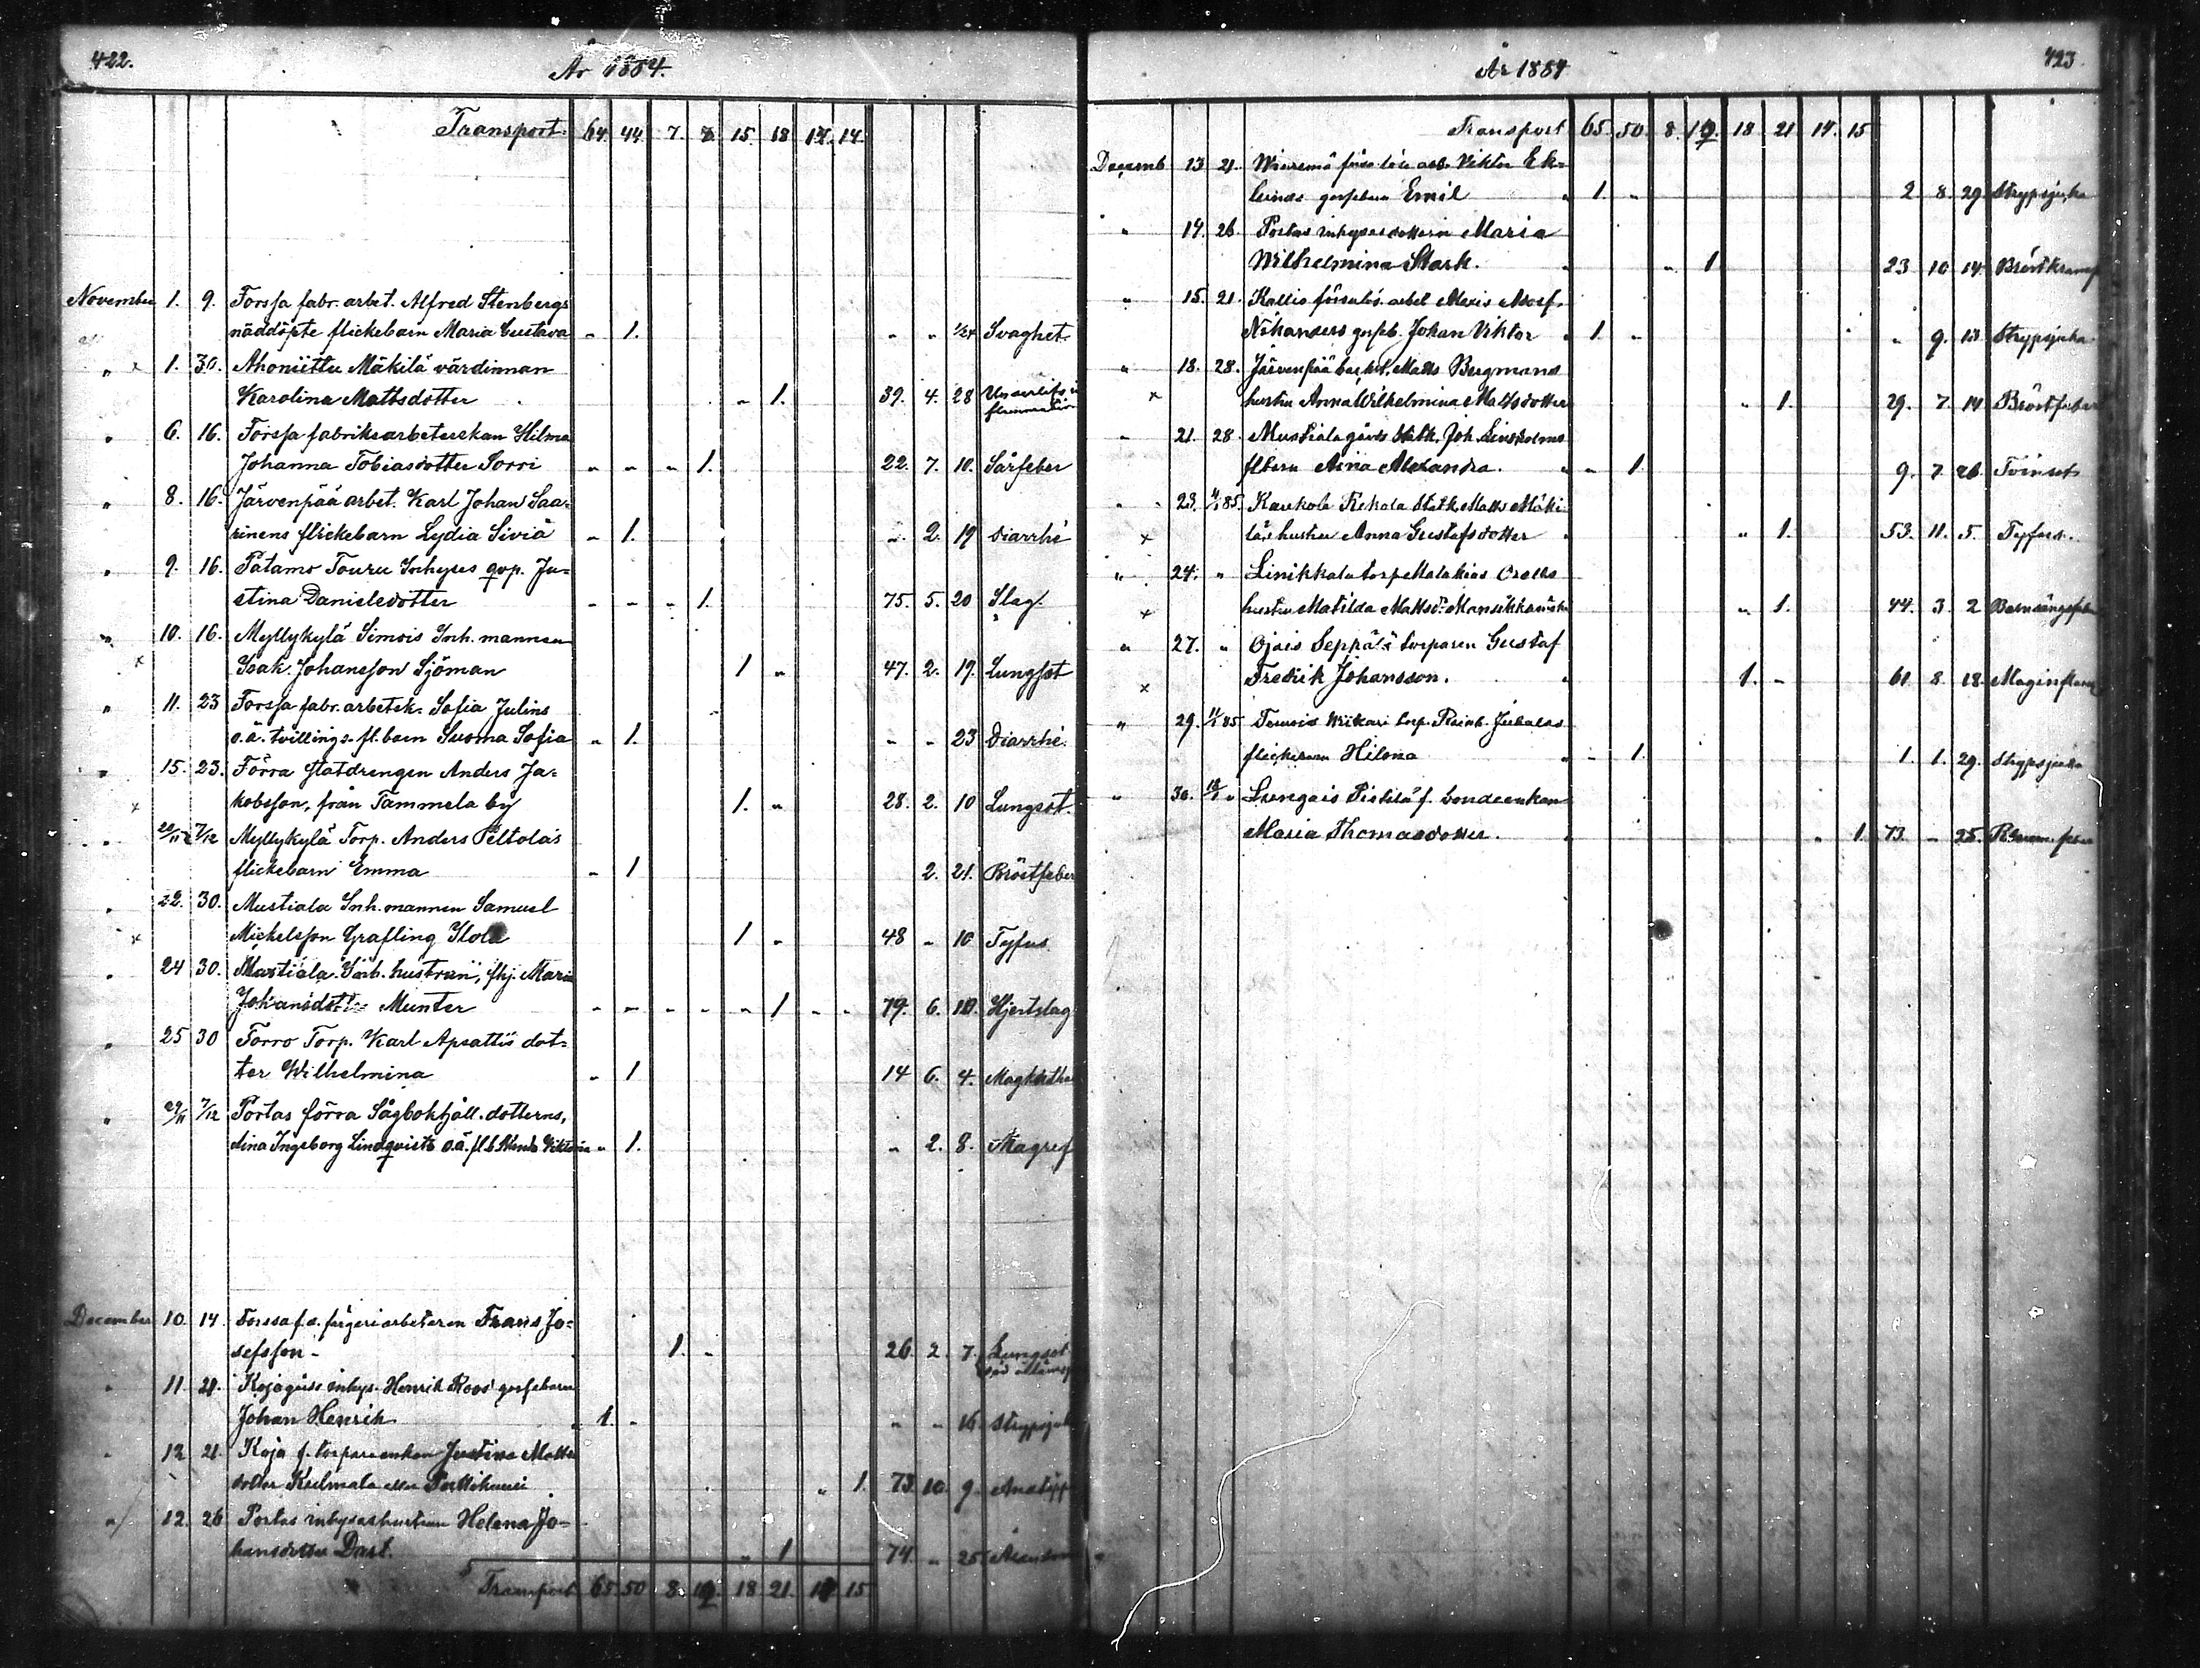 422.
År 1884.
Transport. 64. 44. 7. 15. 18 14.
November 1. 9. Forssa fabr. arbet. Alfred Stenbergs
näddöpte flickebarn Maria Gustava " 1. " " 1/24 Svaghet.
" × 1. 30. Ahoniittu Mäkilä värdinnan
Karolina Mattsdotter " 1. 39. 4. 28
" 6. 16. Forssa fabriksarbeterskan Hilma
Johanna Tobiasdotter Sorri " " " 1. 22. 7. 10. Sårfeber
" 8. 16. Järvenpää arbet. Karl Johan Saa-
rinens flickebarn Lydia Siviä " 1. " 2. 19 diarrhé
" 9. 16. Patamo Touru Inhyses qvp. Ju-
stina Danielsdotter " " " 1. 75. 5. 20 Slag.
" 10. 16. Myllykylä Simois Inh. mannen
× Isak Johansson Sjöman 1 " 47. 2. 19. Lungsot
" 11. 23 Forssa fabr. arbetsk. Sofia Julins
o.ä. tvillings. fl. barn Suoma Sofia " 1. " " 23 Diarrhé.
" 15. 23. Förra statdrengen Anders Ja-
× kobsson, från Tammela by 1. " 28. 2. 10 Lungsot.
" 7/12 Myllykylä Torp. Anders Peltolas
flickebarn Emma " 1 2. 21. Bröstfeber
" 22. 30. Mustiala Inh. mannen Samuel
× Mickelsson Grafling Ilola 1 " 48 " 10 Tyfus
" 24 30. Mustiala Inh. hustrun, fhj. Maria
Johansdotter Munter " " " " " 1 " " 79. 6. 10. Hjertslag
" 25 30 Torro Torp. Karl Apsattis dot-
ter Wilhelmina " 1 14 6. 4.
" 29/11 7/12 Portas förra Sågbokhåll. dotterns,
Aina Ingeborg Lindqvists o.ä. fl.b. Wiktoria " 1. " 2. 8.
December 10. 14. Forssa f.d. färgeriarbetaren Frans Jo-
sefsson 1. " 26. 2. 7. Lungsot
" 11. 21. inhys. Henrik Roos' gossebarn
Johan Henrik " 1. " " " 16.
" 12 21. Koja f. torpareenkan Justina Matts
dotter " 1. 73. 10. 9.
" 12. 26 Portas inhyseshustrun Helena Jo-
hansdotter Dast. " 1 74. " 25
Transport 65 50 8. 19. 18 21. 14 15
423.
År 1884
Transport 65. 50. 8. 19. 18 21. 14. 15
Decemb 13 21. Viktor Ek-
lunds gossebarn Emil " 1. " 2 8 29 Strypsjuka
" 14. 26. Portas inhysesdottern Maria
Wilhelmina Stark. " " 1 23 10 14
" 15. 21. Kallio
gosseb. Johan Viktor " 1. " " 9. 13 Strypsjuka
" 18. 28. Järvenpää Matts Bergmans
× hustru Anna Wilhelmina Mattsdotter " 1. 29. 7. 14 Bröstfeber
" 21. 28. Mustiala gårds statk. Joh. Lindholms
flbarn Aina Alexandra. " " 1. 9. 7. 26 Tvinsot
" 23. 4/1 85. Kaukola Rekola Statk. Matts Mäki-
× läs hustru Anna Gustafsdotter " 1. 53. 11. 5. Tyfus.
" 24. " Linikkala torp.
× hustru Matilda " 1. 44. 3. 2 Barnsängsfeber
" 27. " Ojais Seppälä torparen Gustaf
× Fredrik Johansson. 1. " 61. 8. 18.
" 29. 11/1 85. torp.
flickebarn Hilma " " 1. 1. 1. 29. Strypsjuka
" 30. 18/1 " f. bondeenkan
Maria Thomasdotter. " 1. 73. " 25.